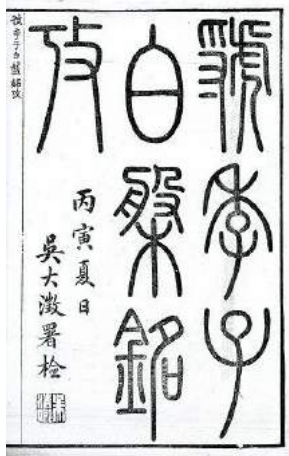 虢季子
白槃銘
攷
丙寅夏日
吳大澂署檢
虢季子白盤銘攷